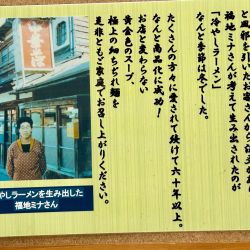 邪を引いたお客さんの
福地ミナさんが考えて生み出されたのが
「冷やしラーメン」
なんと季節は冬でした。
たくさんの方々に愛されて続けて六十年以上。
なんと商品化に成功！
お店と変わらない
黄金色のスープ、
極上の細ちぢれ麺を
是非ともご家庭でお召し上がりください。
やしラーメンを生み出した
福地ミナさん